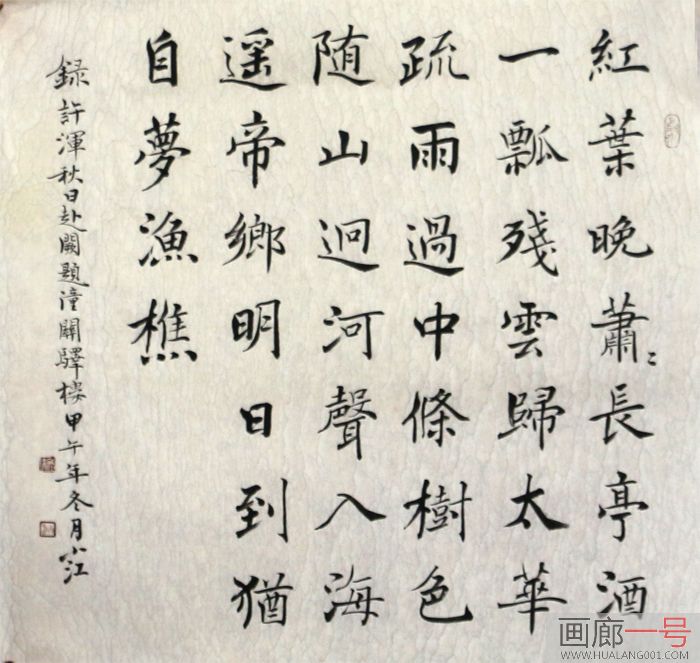 紅葉晚蕭〻長亭酒
一瓢殘雲歸太華
疏雨過中條樹色
随山迥河聲入海
遥帝鄉明日到猶
自夢漁樵
録許渾秋日赴闕題潼關驛樓甲午年冬月小江
画廊一号
WWW.HUALANG001.COM